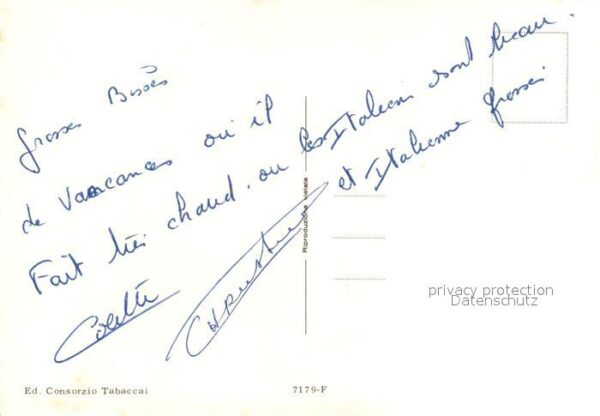 Grosses Bisous
de Vacances où il
Fait très chaud, ou les Italiens sont beau
et Italienne grosses
Colette
Christine
Riproduzione vietata
privacy protection
Datenschutz
Ed. Consorzio Tabaccai
7179-F